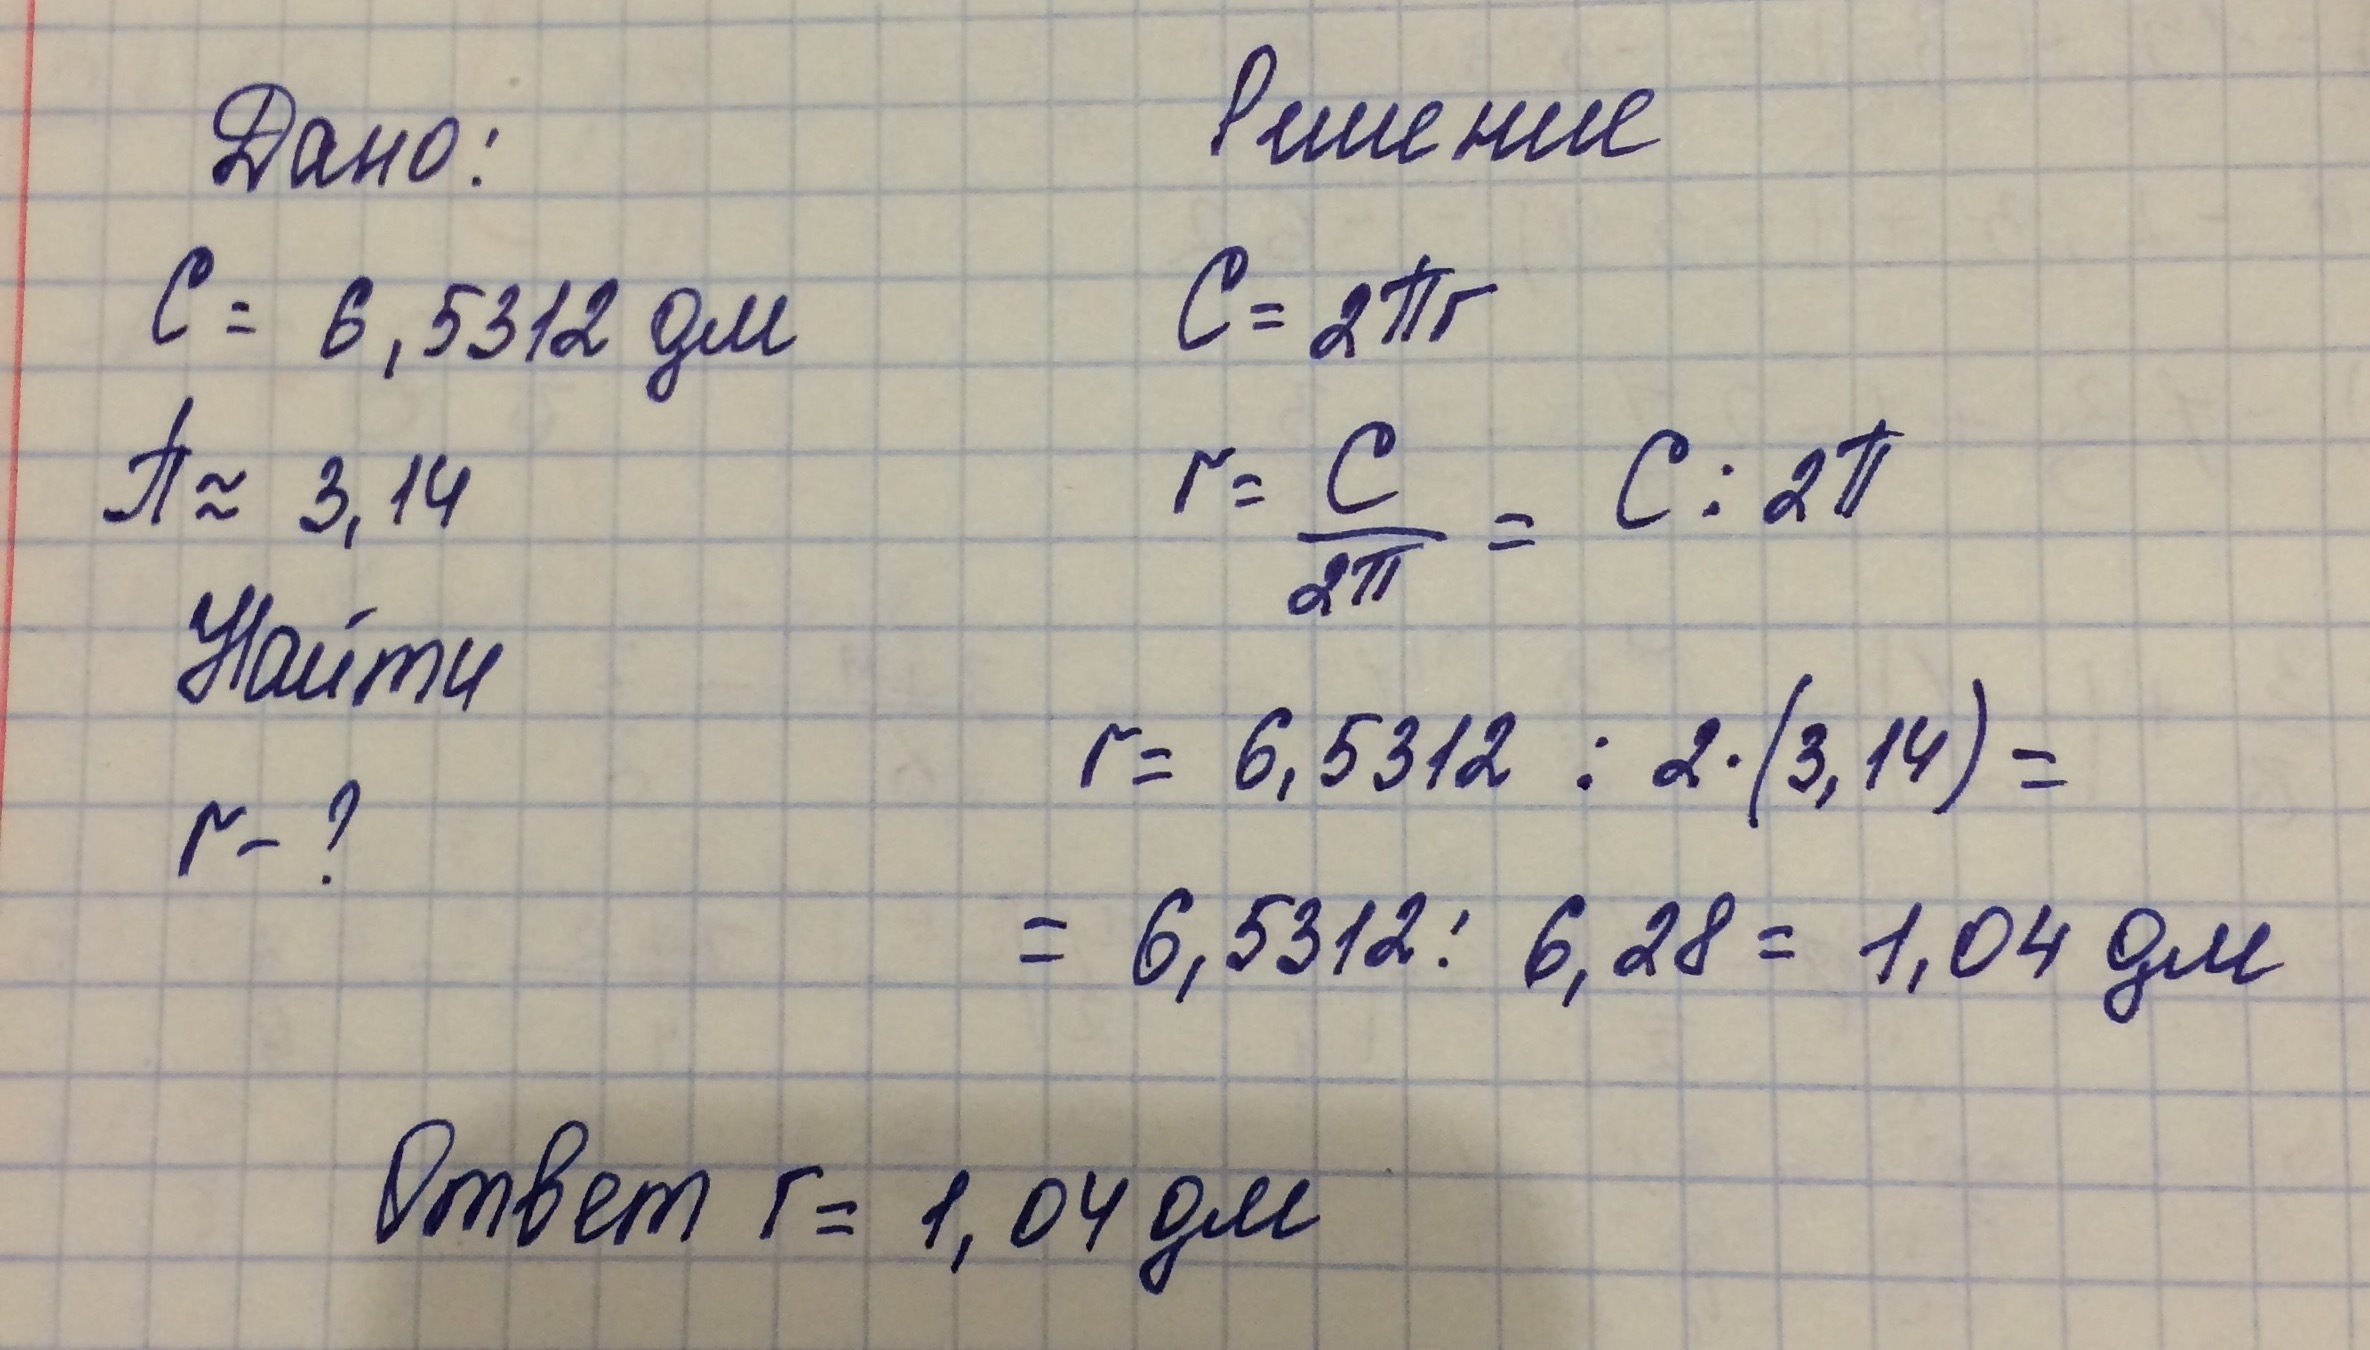 Дано:
C = 6,5312 дм
π ≈ 3,14
Найти
r - ?
Решение
C = 2πr
r = C/2π = C : 2π
r = 6,5312 : 2·(3,14) =
= 6,5312 : 6,28 = 1,04 дм
Ответ r = 1,04 дм